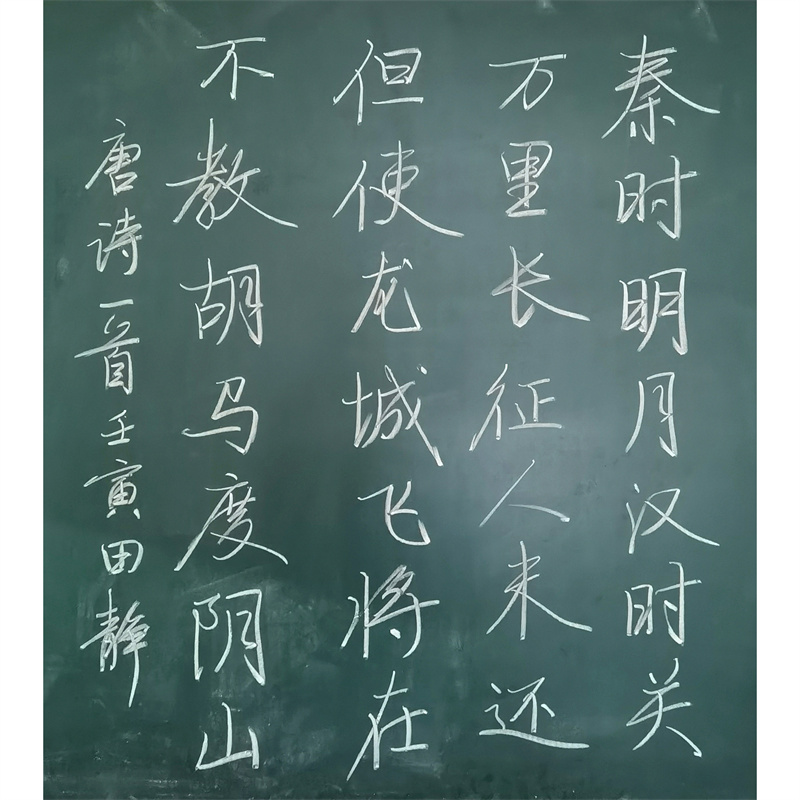 秦时明月汉时关
万里长征人未还
但使龙城飞将在
不教胡马度阴山
唐诗一首壬寅田静